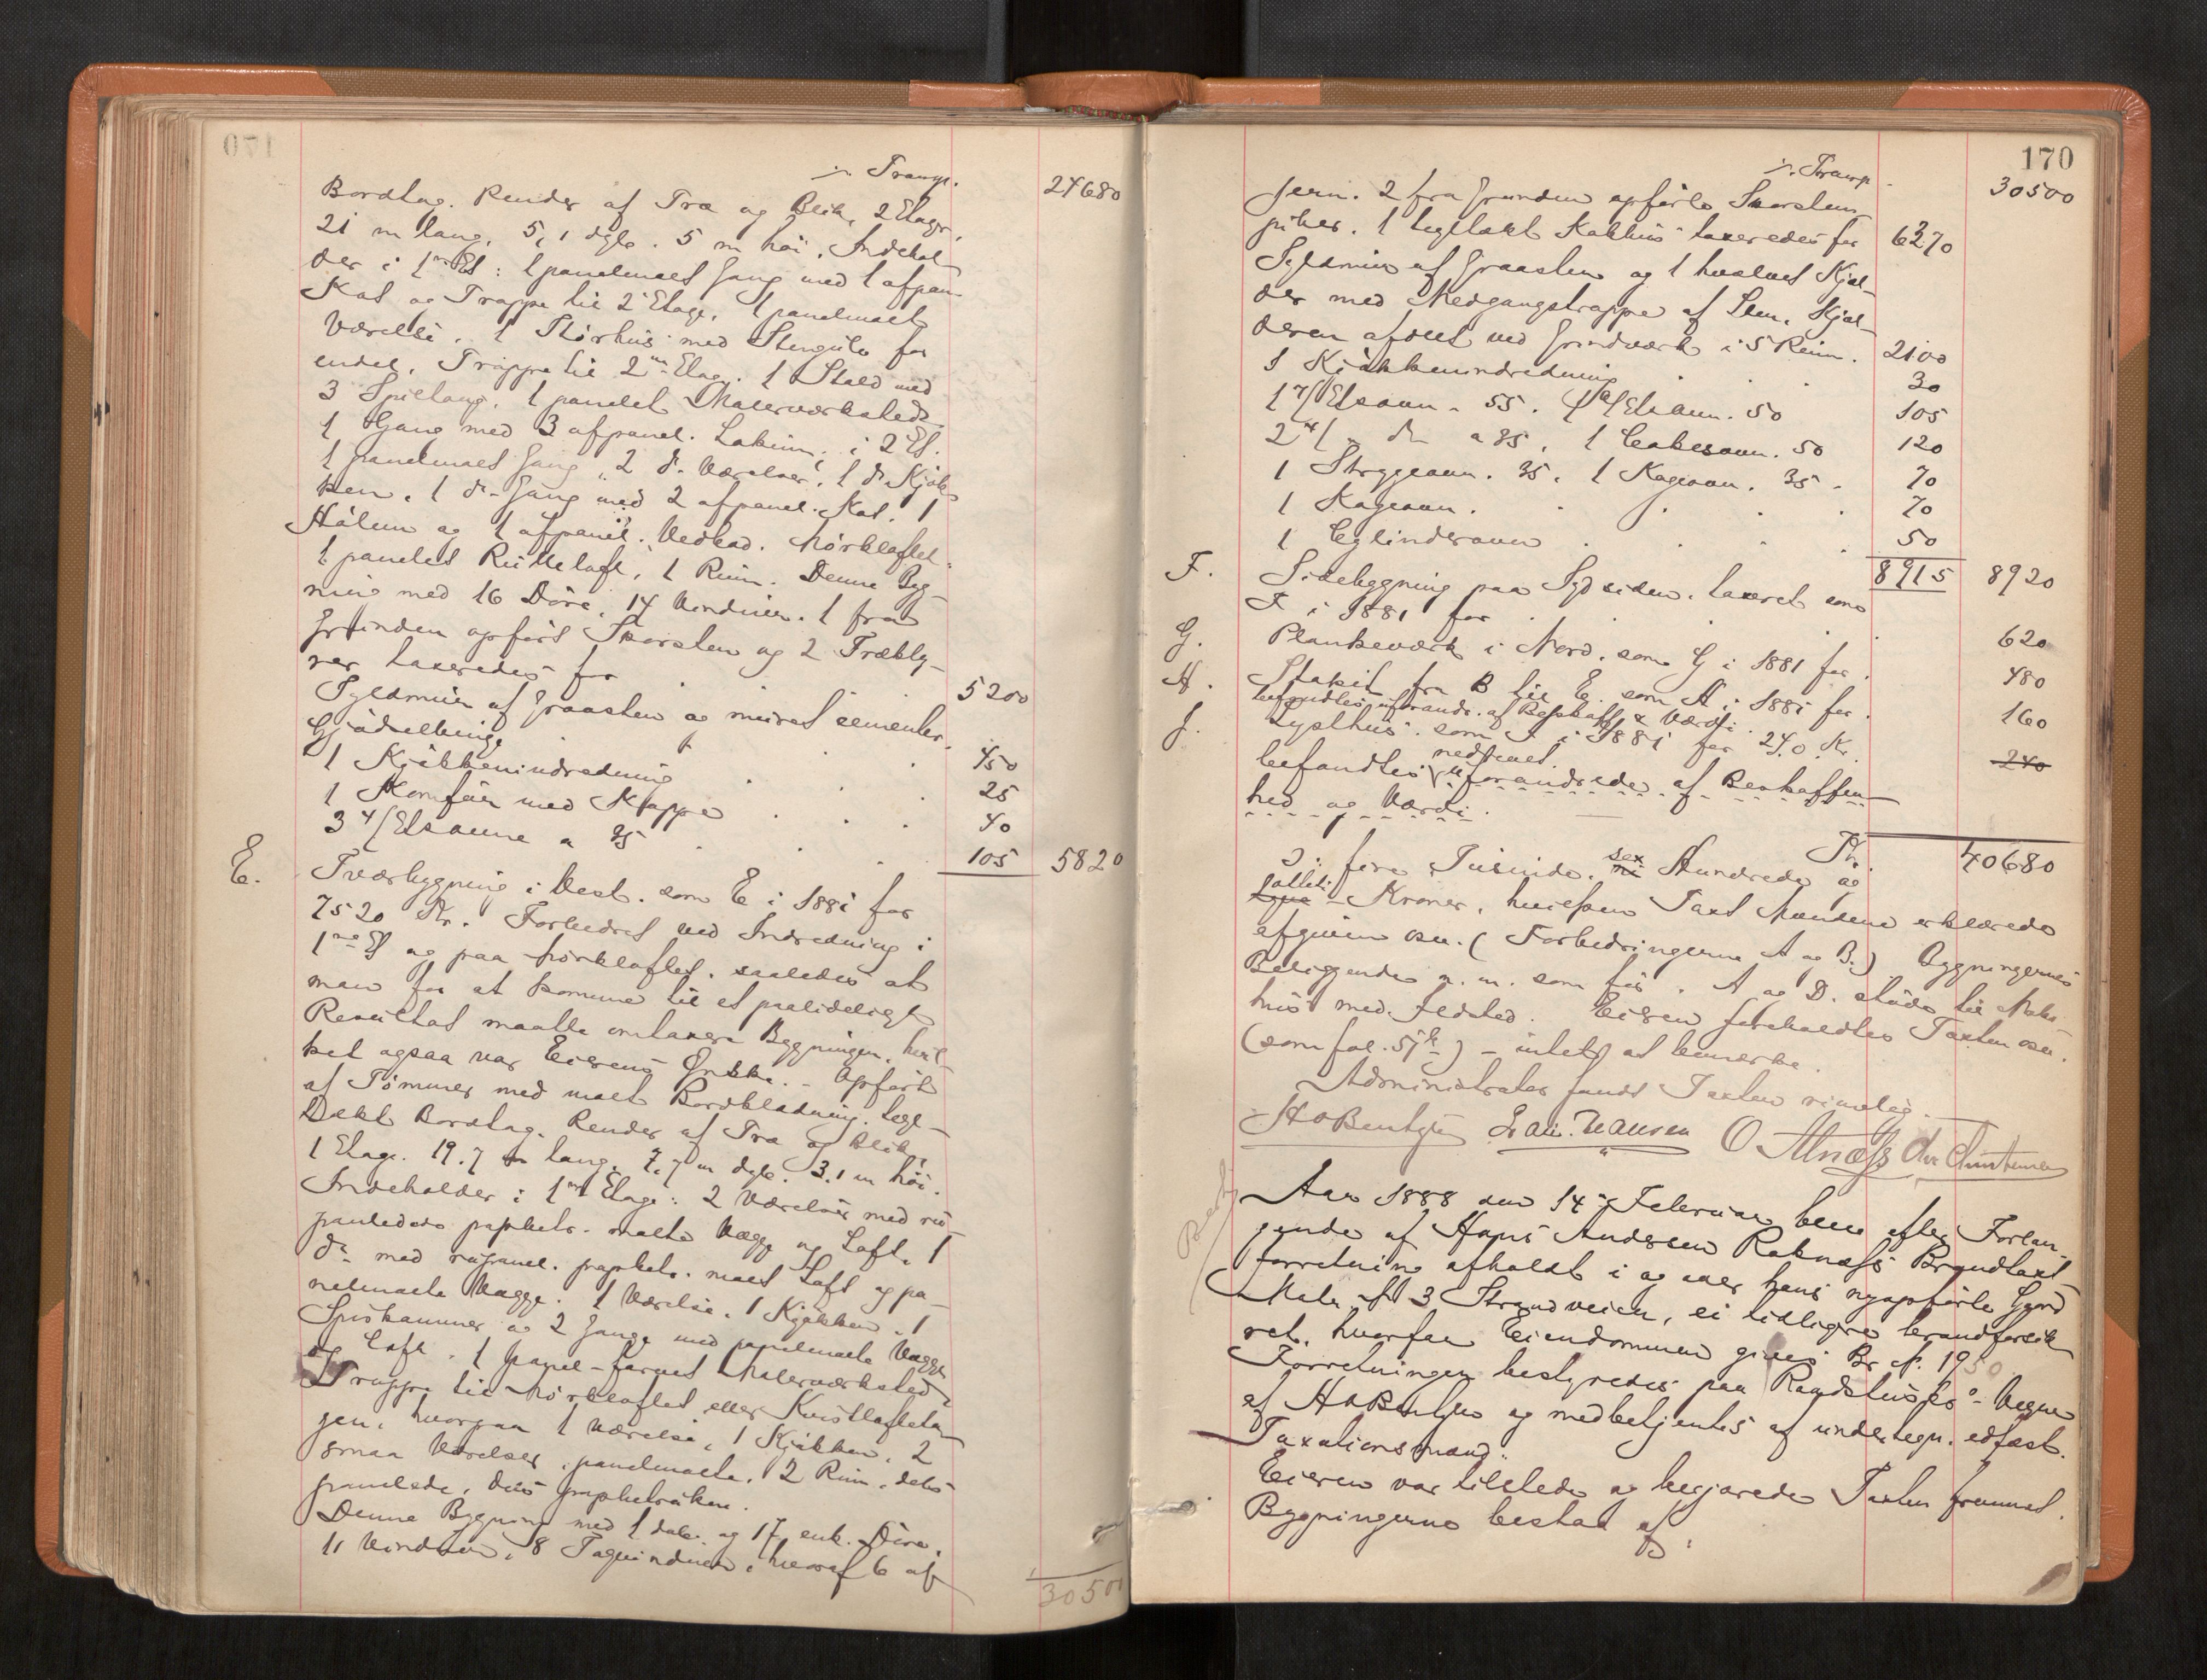 ÷ Transp. 24680
Bordtag. Render af Træ og Blik, 2 Etager,
21 m lang, 5,1 dyb. 5 m høi. Indehol-
der i 1ste Et: 1 panelmalet Gang med 1 afpan.
Kot og Trappe til 2 Etage, 1 panelmalet
Værelse, 1 Størhus med Stengulv for
endel. Trappe til 2den Etag. 1 Stald med
3 Spiltaug. 1 panelet Malerværksted
1 Gang med 3 afpanel. Lokum. i 2 Et.
1 panelmalet Gang, 2 do Værelser, 1 do Kjøk-
ken, 1 do Gang med 2 afpanel. Kot. 1
Hølem og 1 afpanel. Vedbod. Mørkloftet
1 panelet Rulleloft, 1 Rum. Denne Byg-
ning med 16 Døre, 14 Vinduer. 1 fra
Grunden opført Skorsten og 2 Træbly-
rer taxeredes for 5200
Syldmur af Graasten og muret cementer.
Gjødselbinge 450
1 Kjøkkenindredning 25
1 Komfur med Kappe 40
3 4/Etsovne a 35 105 5820
E. Tværbygning i Vest. som E i 1881 for
7520 Kr. Forbedret ved Indredning i
1ste Et og paa Mørkloftet. saaledes at
man for at komme til et paalideligt
Resultat maatte omtaxere Bygningen, hvil-
ket ogsaa var Eierens Ønske. - Opført
af Tømmer med malt Bordklædning. Tegl-
dækt Bordtag. Render af Træ og Blik,
1 Etage. 19.7 m lang, 7,7 m dyb. 3.1 m høi.
Indeholder i 1ste Etage: 2 Værelser med ru-
panledede papbetr. malte Vægge og Loft, 1
do med rupanel. papbetr. malt Loft og pa-
nelmalte Vægge. 1 Værelse, 1 Kjøkken, 1
Spiskammer og 2 Gange med panelmalte Vægge
og Loft. 1 panel-farvet Malerværksted
Trappe til Mørkloftet eller Kvistlofteta-
gen, hvorpaa 1 Værelse, 1 Kjøkken, 2
smaa Værelser, panelmalte. 2 Rum, dels
panelede, dels papbetrukne.
Denne Bygning med 1 dob. og 17 enk. Døre,
11 Vinduer, 8 Tagvinduer, hvoraf 6 af
30500
170
÷ Transp. 30500
Jern. 2 fra Grunden opførte Skorstens-
piber. 1 tegltækt Kakhus taxeredes for 6370
Syldmur af Graasten og 1 hvælvet Kjæl-
der med Nedgangstrappe af Sten. Kjæl-
deren afdelt ved Grindværk i 5 Rum. 2100
1 Kjøkkenindredning 30
1 7/Etsovn. 55. 1 6/Etsovn. 50 105
2 4/ do a 35, 1 Cakesovn. 50 120
1 Strygeovn. 35. 1 Kageovn. 35 70
1 Kageovn. 70
1 Cylinderovn 50
8915 8920
F. Sidebygning paa Sydsiden. taxeret som
F i 1881 for 620
G. Plankeværk i Nord. som G i 1881 for 480
H. Stakit fra B til E. som H i 1881 for 160
befandtes uforandr. af Beskaff. & Værdi.
J. Lysthus. som J i 1881 for 240 Kr. 240
befandtes nedrevet. uforandrede af Beskaffen-
hed og Værdi.
Kr. 40680
fire Tusinde, sex ni Hundrede og
otteti tyve - Kroner, hvilken Taxt Mændene erklærede
afgiven osv. (Forbedringerne A og B.) Bygningernes
Beliggende n. m. som før. A og D. støde til Nabo-
hus med Ildsted. Eieren foreholdtes Taxten osv.
(som fol. 57b) - intet at bemærke.
Administrator fandt Taxten rimelig.
H O Bentzen Lau. Hansen O Alnæss Chr Christensen
Aar 1888 den 14de Februar blev efter Forlan-
gende af Hans Andersen Raknæss Brandtaxt-
forretning afholdt i og over hans nyopførte Gaard
Matr. N 3 Strandveien, ei tidligere brandforsik-
ret, hvorfor Eiendommen gives Br. N. 1950
Forretningen bestyredes paa Magistratens Vegne
af H O Bentzen og medbetjentes af undertegn. edfæst.
Taxationsmænd.
Eieren var tilstede og begjærede Taxten fremmet.
Bygningerne bestaa af: